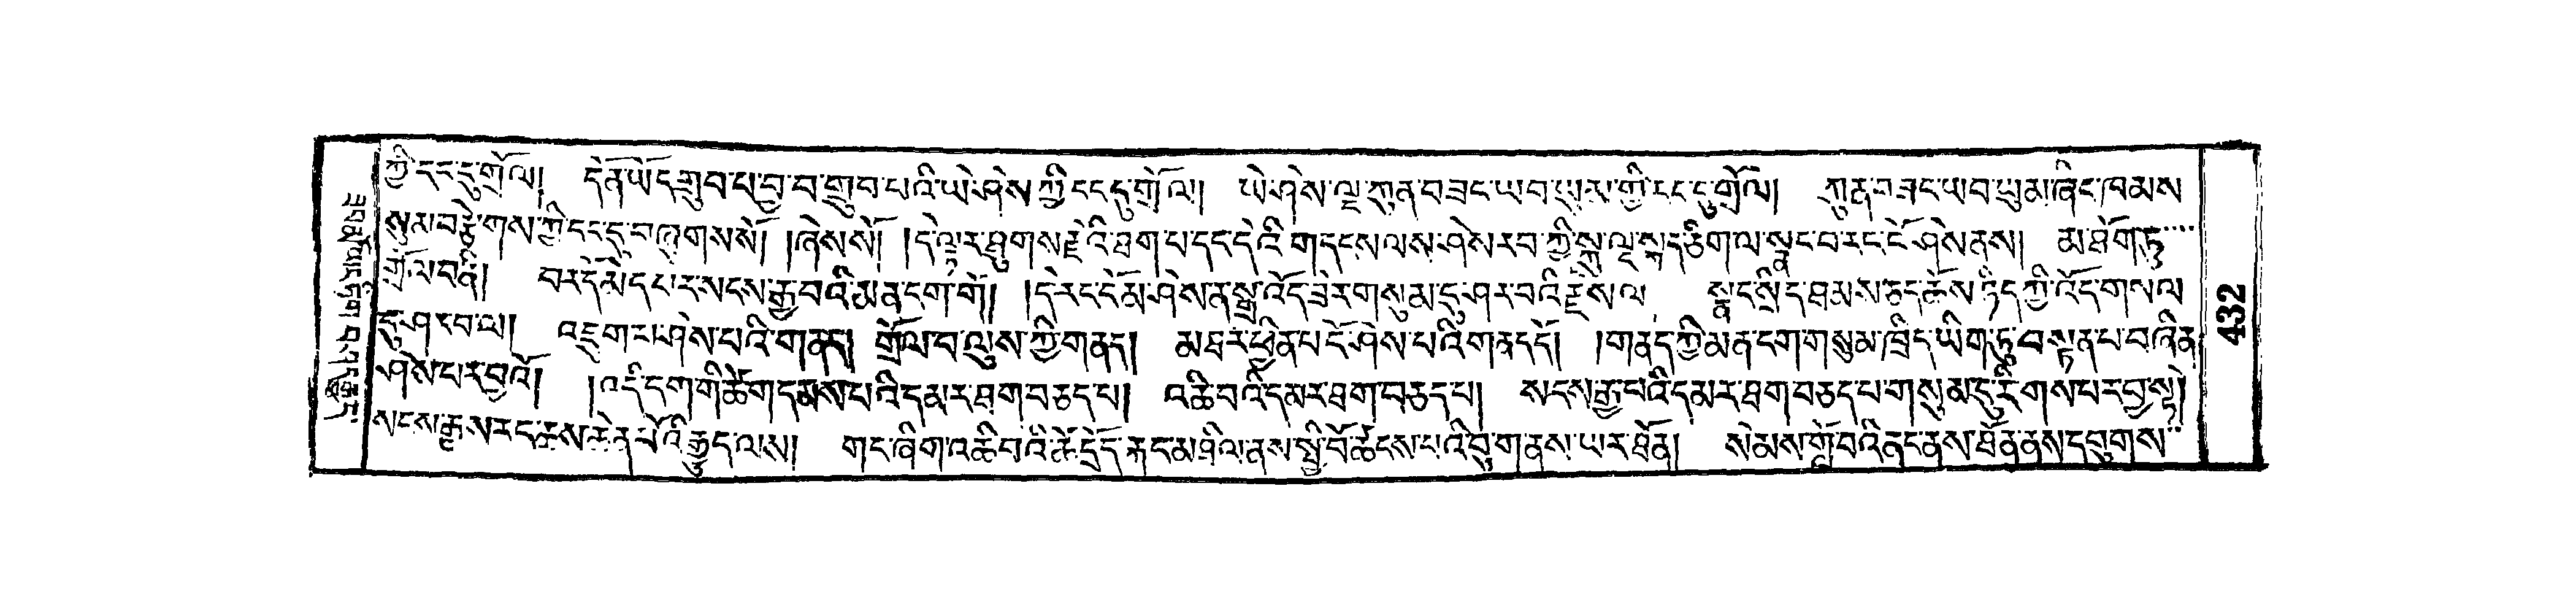 ཀྱི་ངང་དུ་གྲོལ། དེ་ནི་ཡེ་དགྲུབ་པ་བྱ་བ་གྲུབ་པའི་ཡེ་ཤེས་ཀྱི་ངང་དུ་གྲོལ། ཡེ་ཤེས་ལྔ་ཀུན་བཟང་ཡབ་ཡུམ་གྱི་ངང་དུ་གྲོལ། ཀུན་བཟང་ཡབ་ཡུམ་ཞིང་ཁམས
སུམ་བརྩེགས་ཀྱི་ངང་དུ་བཞུགསསོ། །ཞེསསོ། །དེ་ལྟར་ཐུགས་རྗེའི་ཐག་པ་དང་དེའི་གདངས་ལས་ཤེས་རབ་ཀྱི་སྐུ་ལྔ་སྐད་ཅིག་ལ་སྣང་བ་རང་ངོ་ཤེས་ནས། མ་ཐོག་ཏུ
གྲོལ་བནི། བར་དོ་མེད་པར་སངས་རྒྱ་བའི་མན་ངག་གོ། །དེ་རང་ངོ་མ་ཤེས་ན་སྒྲ་འོད་ཟེར་གསུམ་དུ་ཤར་བའི་རྗེས་ལ སྣང་སྲིད་ཐམས་ཅད་ཆོས་ཉིད་ཀྱི་འོད་གསལ
དུ་ཤར་བ་ལ། འཇུག་ཤེས་པའི་གནད། གྲོལ་བ་ལུས་ཀྱི་གནད། མཐར་ཕྱིན་པ་ངོ་ཤེས་པའི་གནད་དོ། །གནད་ཀྱི་མན་ངག་གསུམ་ཁྲིད་ཡིག་ཏུ་བསྟན་པ་བཞིན
ཤེས་པར་བྱའོ། །འདི་དག་གི་ཚོག་དམས་པའི་དམར་ཐག་བཅད་པ། འཆི་བའི་དམར་ཐག་བཅད་པ། སངས་རྒྱ་བའི་དམར་ཐག་བཅད་པ་གསུམ་དུ་རིགས་པར་བྱ་སྟེ།
སངས་རྒྱས་རང་ཆས་ཆེན་པོའི་རྒྱུད་ལས། གང་ཞིག་འཆི་བའི་ཚེ་དྲོད་རྐང་མཐིལ་ནས་སྤྱི་བོ་ཚངས་པའི་བུ་གནས་ཡར་ཐོན། སེམས་གློ་བའི་ནང་ནས་ཐོན་ནས་དབུགས